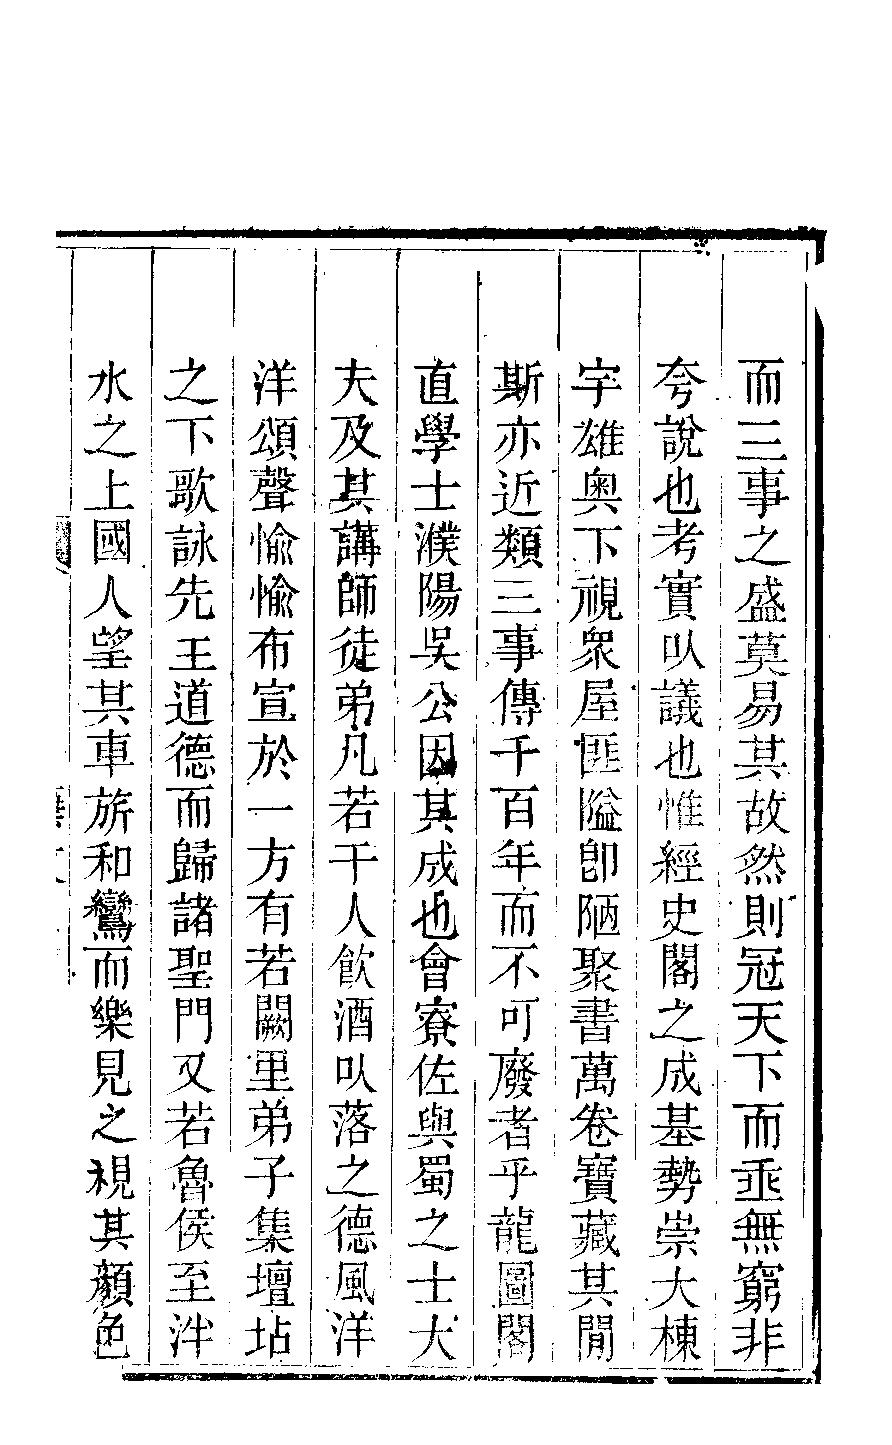 而三事之盛莫易其故然則冠天下而垂無窮非
夸說也考實㕥議也惟經史閣之成基勢崇大棟
宇雄奥下視衆屋匪隘卽陋聚書萬卷寶藏其閒
斯亦近類三事傳千百年而不可廢者乎龍圖閣
直學士濮陽吳公因其成也會寮佐與蜀之士大
夫及其講師徒弟凡若干人飲酒㕥落之德風洋
洋頌聲愉愉布宣於一方有若闕里弟子集壇坫
之下歌詠先王道德而歸諸聖門又若魯侯至泮
水之上國人望其車旂和鸞而樂見之視其顏色